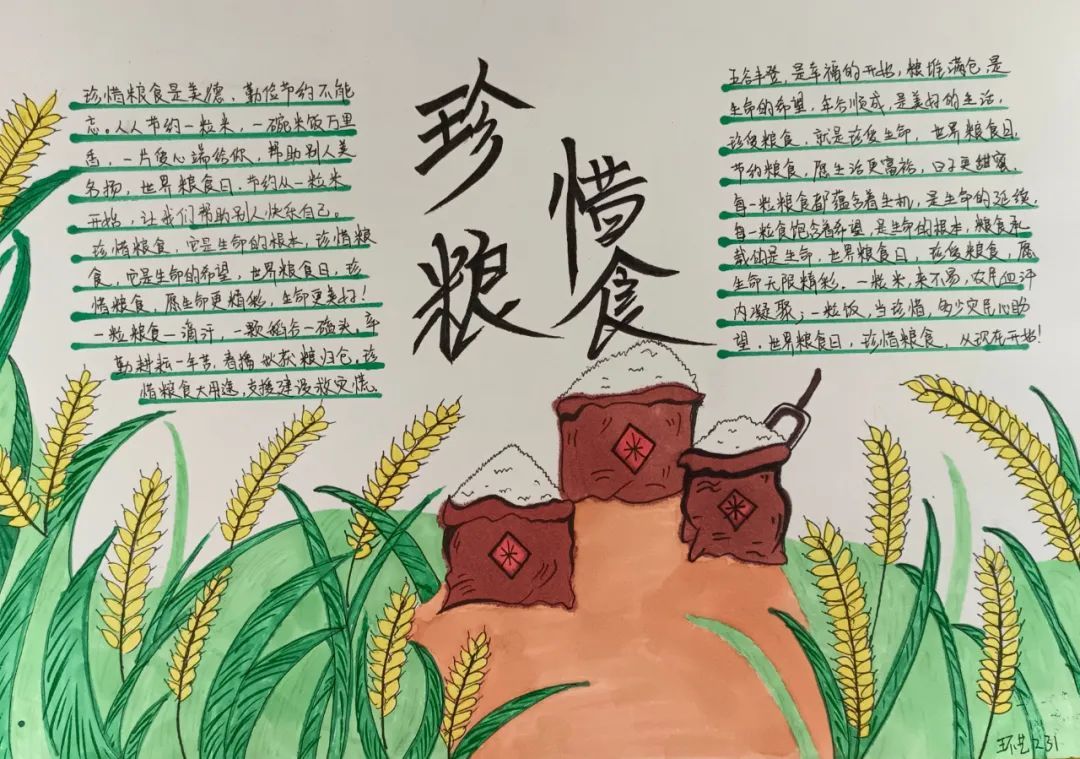 珍惜
粮食
珍惜粮食是美德、勤俭节约不能
忘。人人节约一粒米，一碗米饭万里
香，一片爱心端给你，帮助别人美
名扬，世界粮食日.节约从一粒米
开始，让我们帮助别人快乐自己。
珍惜粮食，它是生命的根本，珍惜粮
食，它是生命的希望，世界粮食日，珍
惜粮食，愿生命更精彩，生命更美好！
一粒粮食一滴汗，一颗稻谷一磕头，辛
勤耕耘一年苦，春播秋获粮归仓，珍
惜粮食大用途，支援建设救灾慌。
五谷丰登，是幸福的开始，粮堆满仓，是
生命的希望，年谷顺成，是美好的生活，
珍爱粮食，就是珍爱生命，世界粮食日，
节约粮食，愿生活更富裕，日子更甜蜜。
每一粒粮食都蕴含着生机，是生命的延续，
每一粒食饱含着希望，是生命的根本，粮食承
载的是生命，世界粮食日，珍爱粮食，愿
生命无限精彩。一粒米，来不易，农民血汗
内凝聚；一粒饭，当珍惜，多少灾民心盼
望，世界粮食日，珍惜粮食，从现在开始！
环艺231